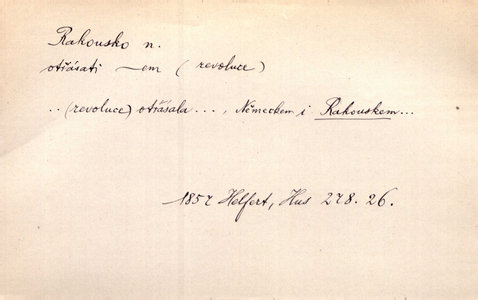 Rakousko n.
otřásati —em (revoluce)
.. (revoluce) otřásala ..., Německem i Rakouskem...
1857 Helfert, Hus 278. 26.